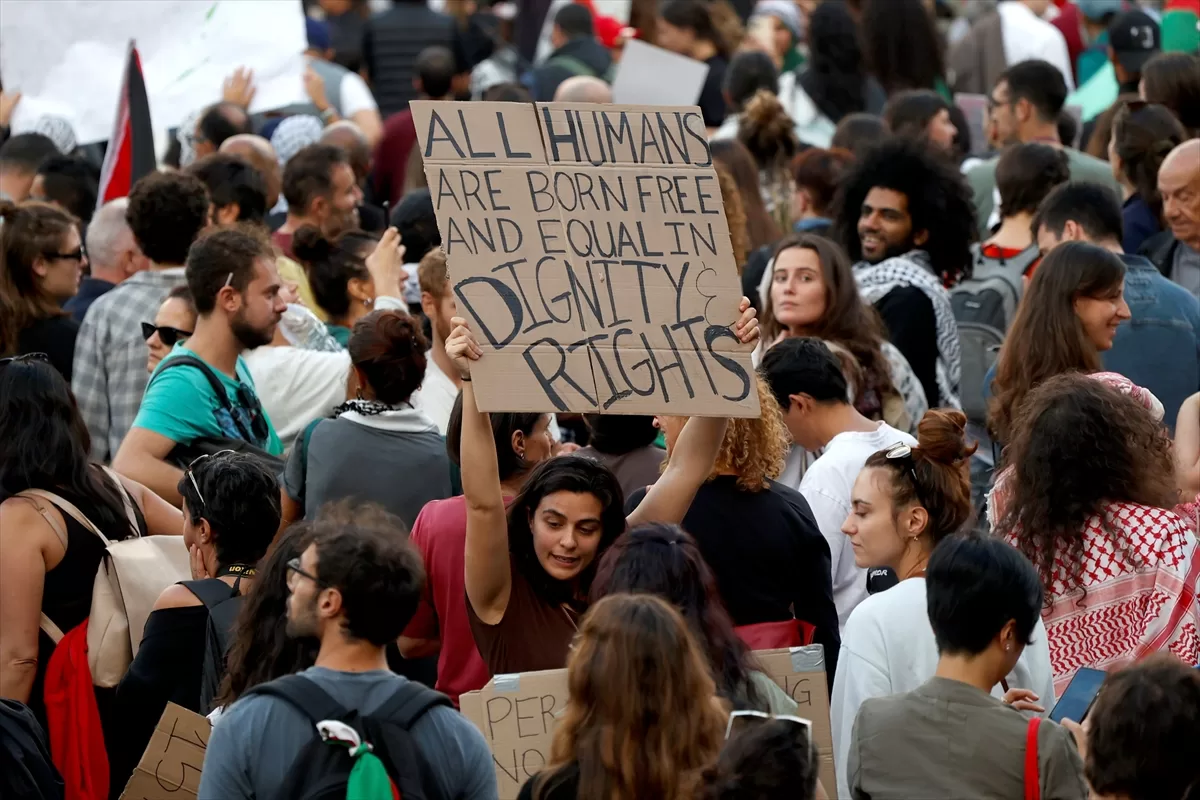 ALL HUMANS
ARE BORN FREE
AND EQUAL IN
DIGNITY &
RIGHTS
PER
NO
NG